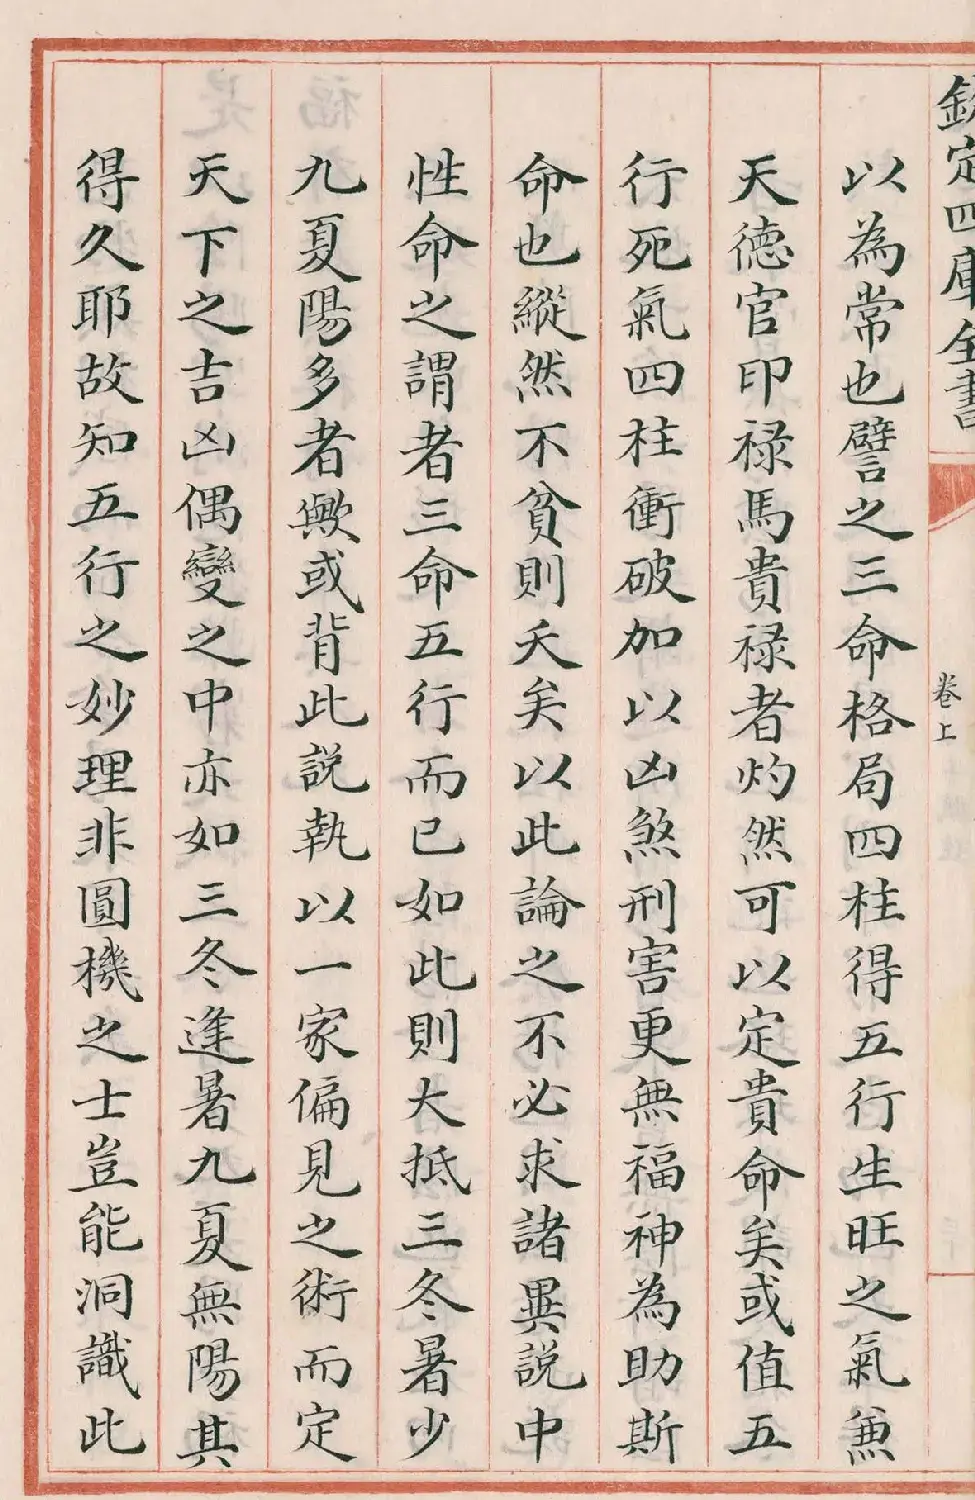 欽定四庫全書
卷上
以為常也譬之三命格局四柱得五行生旺之氣兼
天德官印禄馬貴禄者灼然可以定貴命矣或值五
行死氣四柱衝破加以凶煞刑害更無福神為助斯
命也縱然不貧則夭矣以此論之不必求諸異説中
性命之謂者三命五行而已如此則大抵三冬暑少
九夏陽多者歟或背此説執以一家偏見之術而定
天下之吉凶偶變之中亦如三冬逢暑九夏無陽其
得久耶故知五行之妙理非圓機之士豈能洞識此